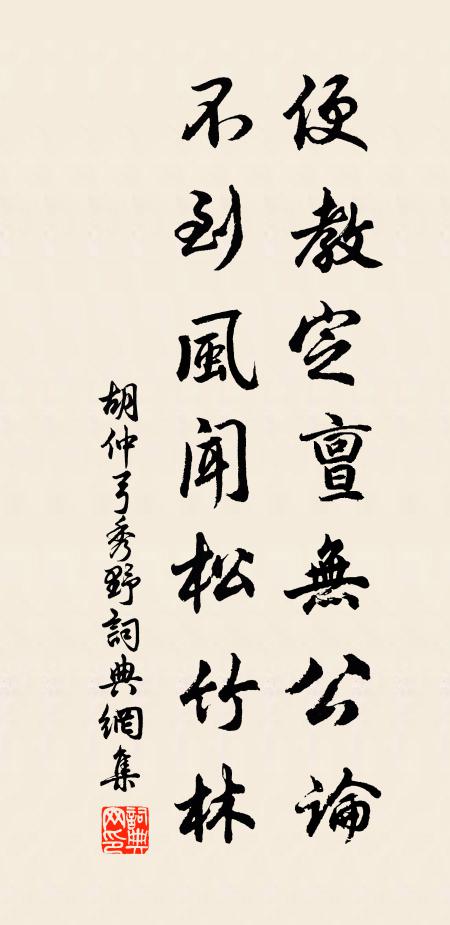 便教定亶無公論
不到風聞松竹林
胡仲弓秀野詞典網集
詞典網印